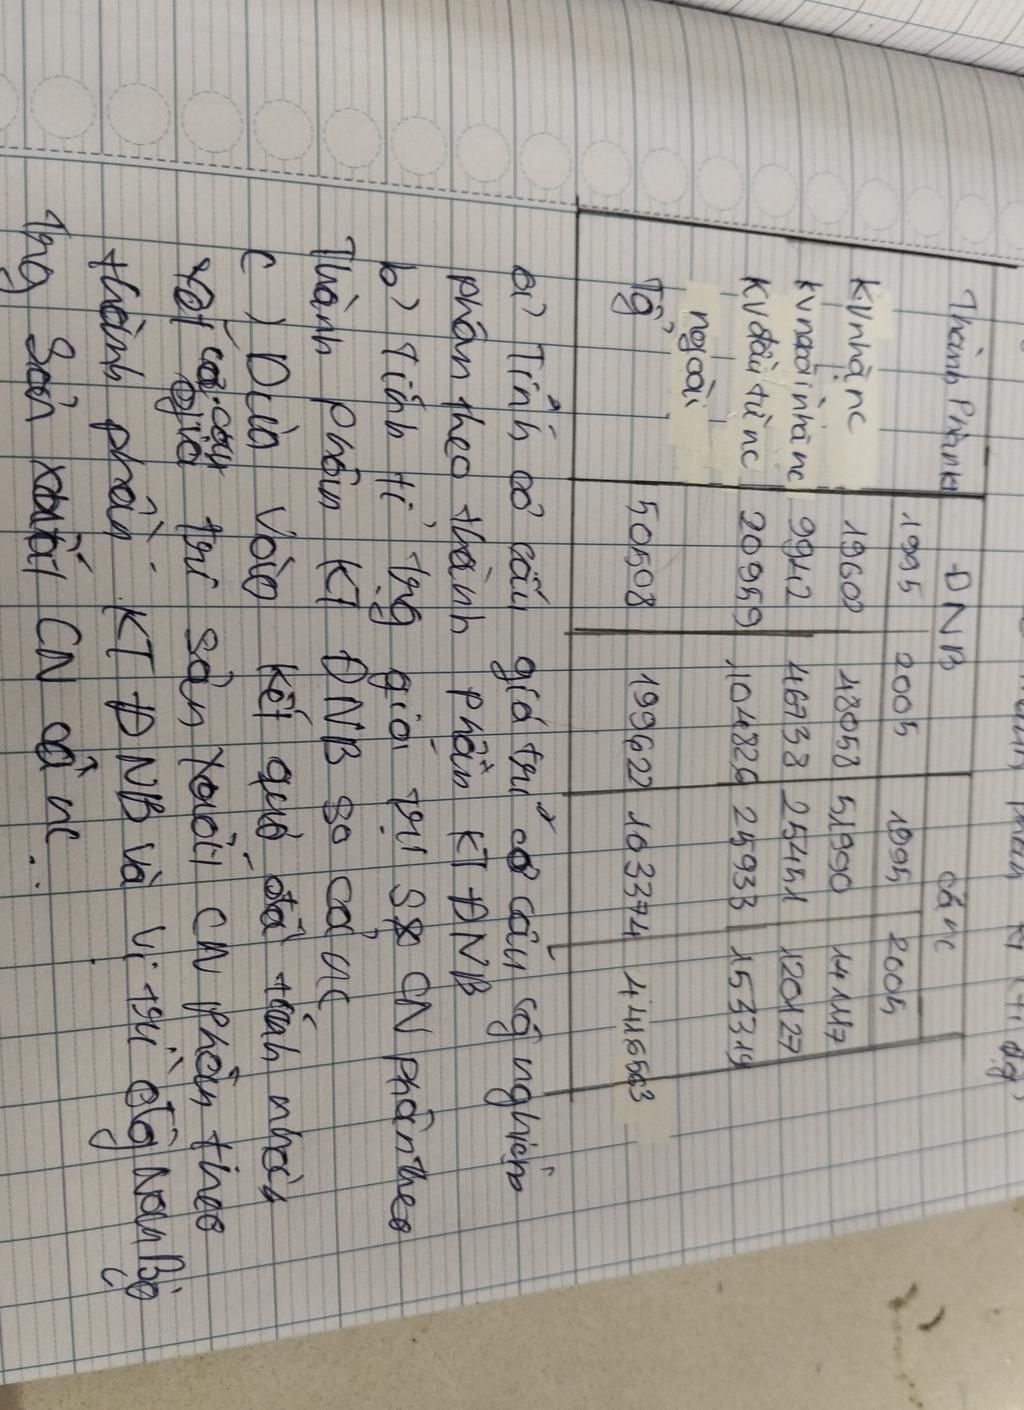 Thành Phần ĐNB cả nc
1995 2005 1995 2005
KV nhà nc 19608 48058 51990 141117
KV ngoài nhà nc 9942 46738 25451 120127
KV đầu tư nc 20959 104826 25933 153319
ngoài
Tổg 50508 199622 103374 416563
a) Tính cơ cấu giá trị cơ cấu cg nghiệp
phân theo thành phần KT ĐNB
b) Tính tỉ trg giá trị SX CN phân theo
Thành phần KT ĐNB so cả nc
c) Dựa vào kết quả đã tính nhận
xét giá trị sản xuất CN phân theo
thành phần KT ĐNB và vị trí đg Nam Bộ
trg Sản xuất CN cả nc.